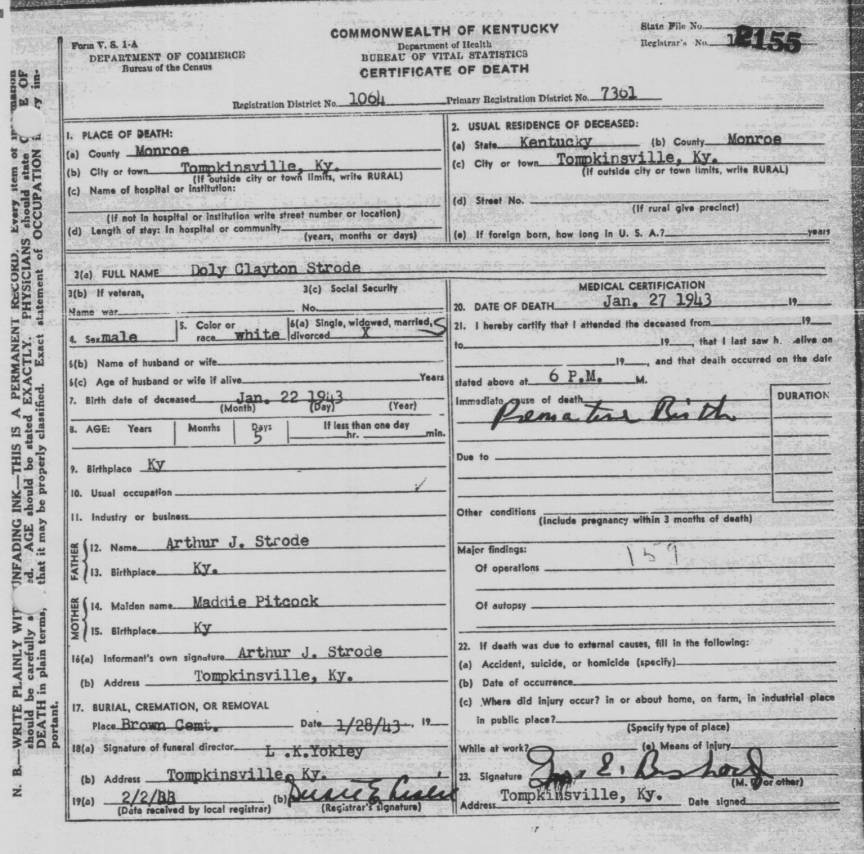 COMMONWEALTH OF KENTUCKY
Form V. S. 1-A
DEPARTMENT OF COMMERCE
Bureau of the Census
Department of Health
BUREAU OF VITAL STATISTICS
CERTIFICATE OF DEATH
State File No.
Registrar's No. 2155
Registration District No. 1064 Primary Registration District No. 7361
1. PLACE OF DEATH:
(a) County Monroe
(b) City or town Tompkinsville, Ky.
(If outside city or town limits, write RURAL)
(c) Name of hospital or institution:
(If not in hospital or institution write street number or location)
(d) Length of stay: In hospital or community
(years, months or days)
2. USUAL RESIDENCE OF DECEASED:
(a) State Kentucky (b) County Monroe
(c) City or town Tompkinsville, Ky.
(If outside city or town limits, write RURAL)
(d) Street No.
(If rural give precinct)
(e) If foreign born, how long in U. S. A.? years
3(a) FULL NAME Doly Clayton Strode
3(b) If veteran, 3(c) Social Security
Name war No.
4. Sex male 5. Color or race white 6(a) Single, widowed, married, divorced X S
6(b) Name of husband or wife
6(c) Age of husband or wife if alive Years
7. Birth date of deceased Jan. 22 1943
(Month) (Day) (Year)
8. AGE: Years Months Days 5 If less than one day hr. min.
9. Birthplace Ky
10. Usual occupation
11. Industry or business
FATHER
12. Name Arthur J. Strode
13. Birthplace Ky.
MOTHER
14. Maiden name Maddie Pitcock
15. Birthplace Ky
16(a) Informant's own signature Arthur J. Strode
(b) Address Tompkinsville, Ky.
17. BURIAL, CREMATION, OR REMOVAL
Place Brown Cemt. Date 1/28/43 19
18(a) Signature of funeral director L .K.Yokley
(b) Address Tompkinsville, Ky.
19(a) 2/2/33 (b)
(Date received by local registrar) (Registrar's signature)
MEDICAL CERTIFICATION
20. DATE OF DEATH Jan. 27 1943 19
21. I hereby certify that I attended the deceased from
to 19 , that I last saw h. alive on
19 , and that death occurred on the date
stated above at 6 P.M. M.
Immediate cause of death DURATION
Premature Birth
Due to
Other conditions
(Include pregnancy within 3 months of death)
Major findings: 159
Of operations
Of autopsy
22. If death was due to external causes, fill in the following:
(a) Accident, suicide, or homicide (specify)
(b) Date of occurrence
(c) Where did injury occur? in or about home, on farm, in industrial place
in public place?
(Specify type of place)
While at work? (e) Means of injury
23. Signature
(M. D. or other)
Address Tompkinsville, Ky. Date signed
N. B.—WRITE PLAINLY WITH UNFADING INK—THIS IS A PERMANENT RECORD. Every item of information
should be carefully AGE should be stated EXACTLY. PHYSICIANS should state OF
DEATH in plain terms, that it may be properly classified. Exact statement of OCCUPATION im-
portant.